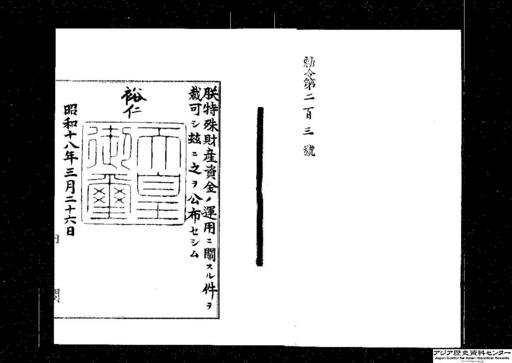 勅令第二百三號
朕特殊財産資金ノ運用ニ關スル件ヲ
裁可シ玆ニ之ヲ公布セシム
裕仁
天皇
御璽
昭和十八年三月二十六日
内閣
アジア歴史資料センター
Japan Center for Asian Historical Records